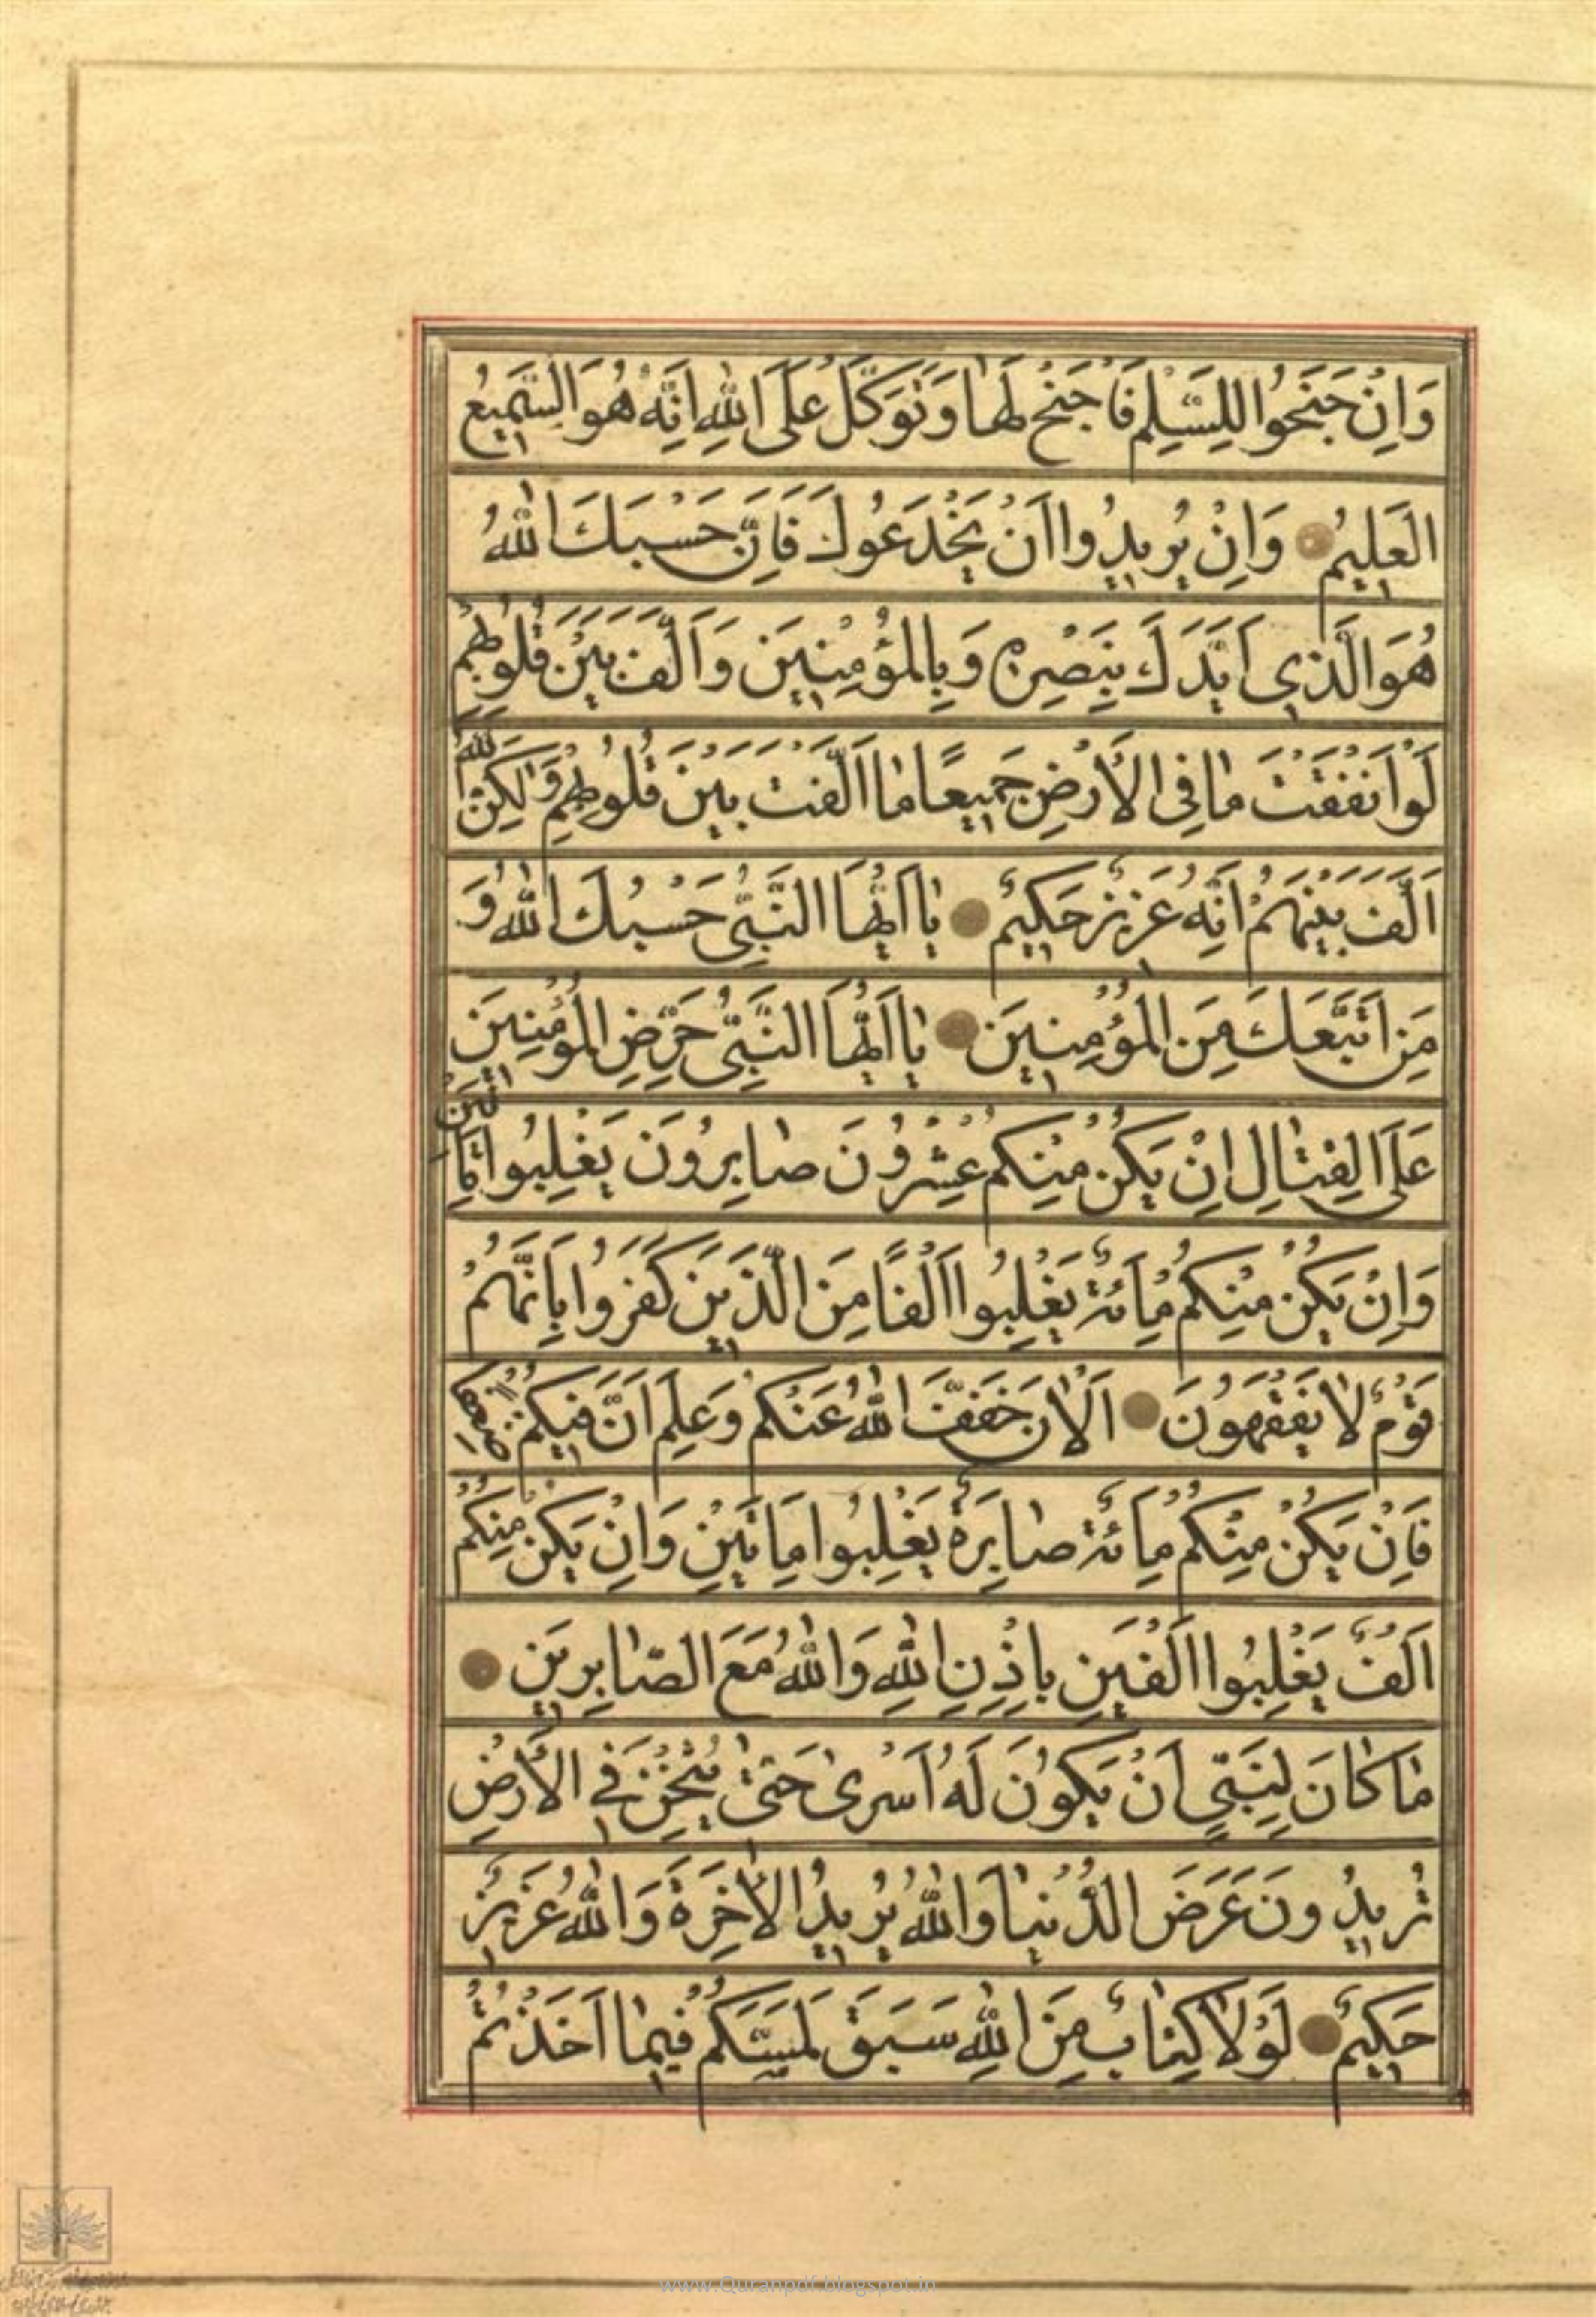 وَاِنْ جَنَحُوا لِلسَّلِمِ فَاجْنَحْ لَهٰا وَتَوَكَّلْ عَلَى اللّٰهِ اِنَّهُ هُوَ السَّمِيعُ
الْعَلِيمُ وَاِنْ يُرِيدُوا اَنْ يَخْدَعُوكَ فَاِنَّ حَسْبَكَ اللّٰهُ
هُوَ الَّذِي اَيَّدَكَ بِنَصْرِهِ وَبِالْمُؤْمِنِينَ وَاَلَّفَ بَيْنَ قُلُوبِهِمْ
لَوْ اَنْفَقْتَ مٰا فِي الْاَرْضِ جَمِيعًا مٰا اَلَّفْتَ بَيْنَ قُلُوبِهِمْ وَلٰكِنَّ اللّٰهَ
اَلَّفَ بَيْنَهُمْ اِنَّهُ عَزِيزٌ حَكِيمٌ يٰا اَيُّهَا النَّبِيُّ حَسْبُكَ اللّٰهُ وَ
مَنِ اتَّبَعَكَ مِنَ الْمُؤْمِنِينَ يٰا اَيُّهَا النَّبِيُّ حَرِّضِ الْمُؤْمِنِينَ
عَلَى الْقِتٰالِ اِنْ يَكُنْ مِنْكُمْ عِشْرُونَ صٰابِرُونَ يَغْلِبُوا مِاَتَيْنِ
وَاِنْ يَكُنْ مِنْكُمْ مِاَئَةٌ يَغْلِبُوا اَلْفًا مِنَ الَّذِينَ كَفَرُوا بِاَنَّهُمْ
قَوْمٌ لٰا يَفْقَهُونَ اَلْاٰنَ خَفَّفَ اللّٰهُ عَنْكُمْ وَعَلِمَ اَنَّ فِيكُمْ ضَعْفًا
فَاِنْ يَكُنْ مِنْكُمْ مِاَئَةٌ صٰابِرَةٌ يَغْلِبُوا مِاَتَيْنِ وَاِنْ يَكُنْ مِنْكُمْ
اَلْفٌ يَغْلِبُوا اَلْفَيْنِ بِاِذْنِ اللّٰهِ وَاللّٰهُ مَعَ الصّٰابِرِينَ
مٰا كٰانَ لِنَبِيٍّ اَنْ يَكُونَ لَهُ اَسْرىٰ حَتّىٰ يُثْخِنَ فِي الْاَرْضِ
تُرِيدُونَ عَرَضَ الدُّنْيٰا وَاللّٰهُ يُرِيدُ الْاٰخِرَةَ وَاللّٰهُ عَزِيزٌ
حَكِيمٌ لَوْلٰا كِتٰابٌ مِنَ اللّٰهِ سَبَقَ لَمَسَّكُمْ فِيمٰا اَخَذْتُمْ
www.Quranpdf.blogspot.in